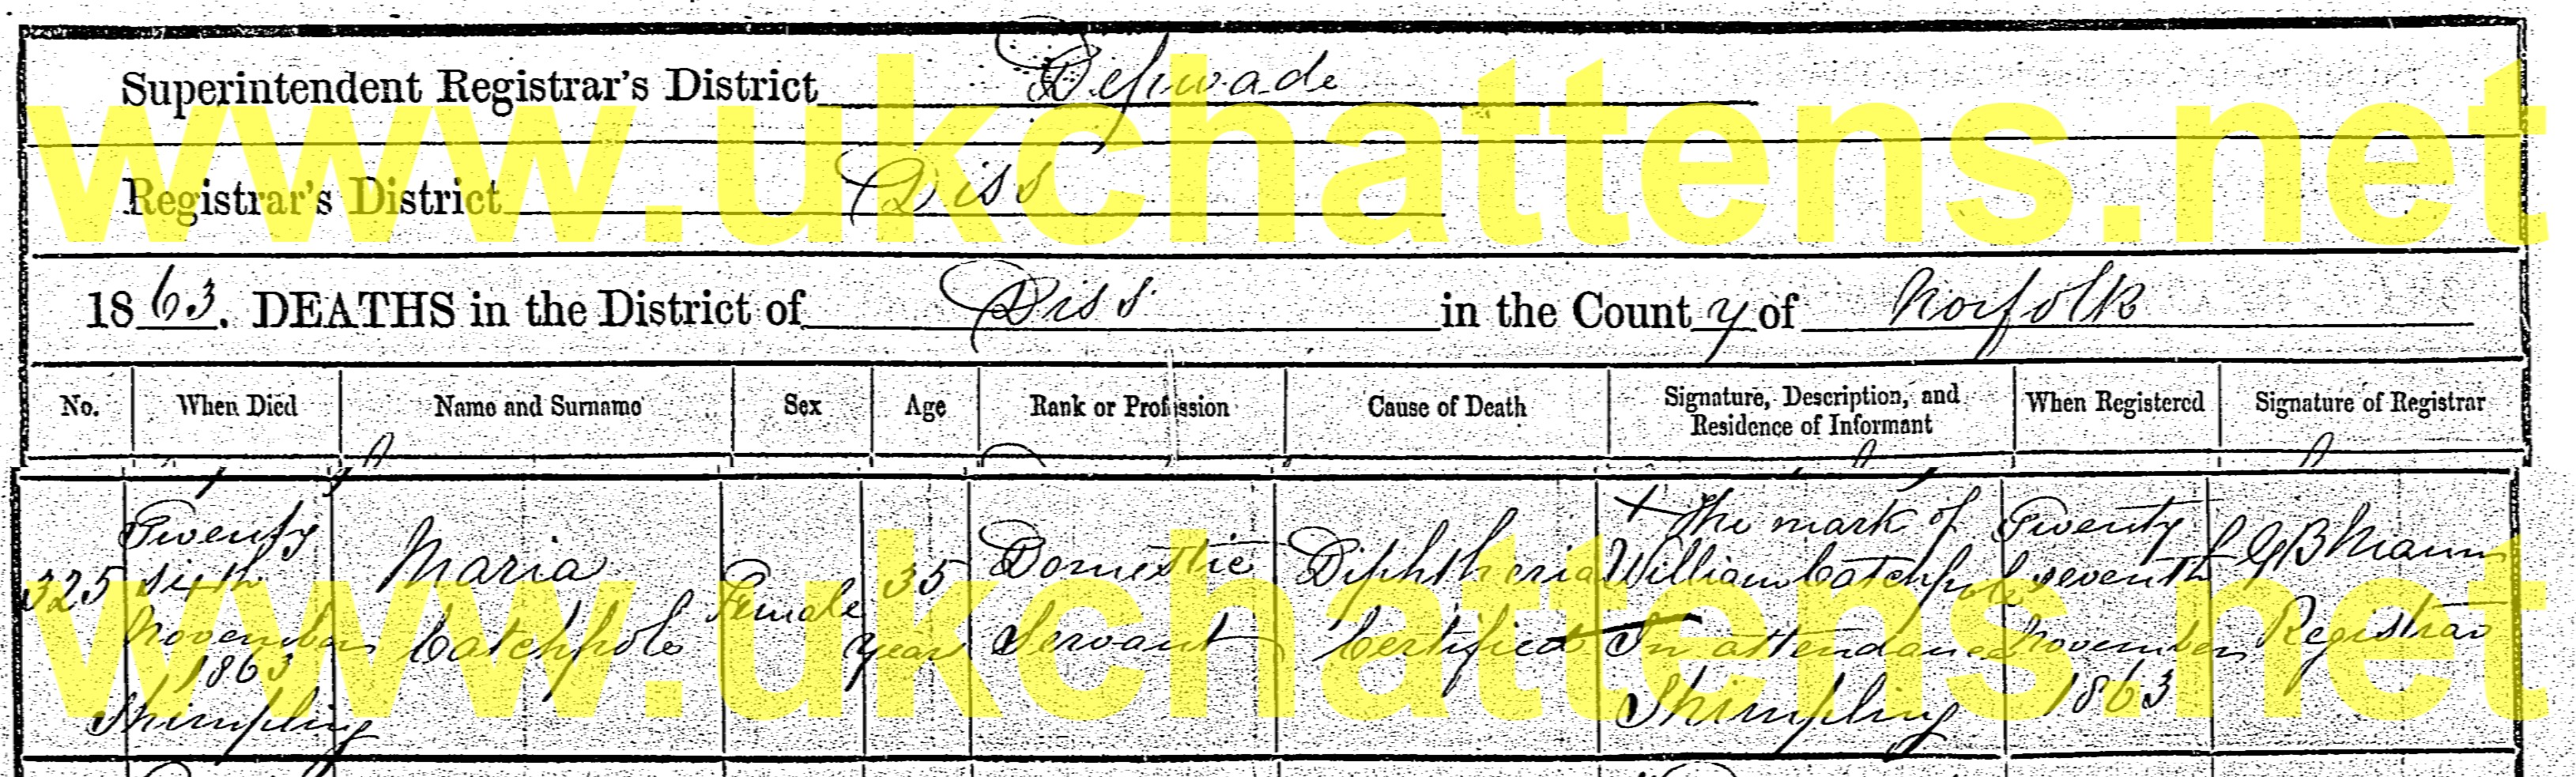 Superintendent Registrar's District Depwade
Registrar's District Diss
1863. DEATHS in the District of Diss in the County of Norfolk
No. When Died Name and Surname Sex Age Rank or Profession Cause of Death Signature, Description, and Residence of Informant When Registered Signature of Registrar
325
Twenty
sixth
November
1863
Shimpling
Maria
Catchpole
Female
35
years
Domestic
Servant
Diphtheria
Certified
X The mark of
William Catchpole
In attendance
Shimpling
Twenty
seventh
November
1863
G B Mann
Registrar
www.ukchattens.net
www.ukchattens.net